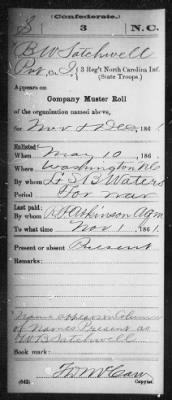 (Confederate.)
S 3 N.C.
B W Satchwell
Pvt, Co. I, 3 Reg't North Carolina Inf.
(State Troops.)
Appears on
Company Muster Roll
of the organization named above,
for Nov & Dec, 1861
Enlisted:
When May 10, 186
Where Washington N C
By whom Lt S B Waters
Period For war
Last paid:
By whom Atkinson Agm
To what time Nov 1, 1861.
Present or absent Present
Remarks:
Name appears in column
of Names Present as
W B Satchwell
Book mark:
(642) Copyist.